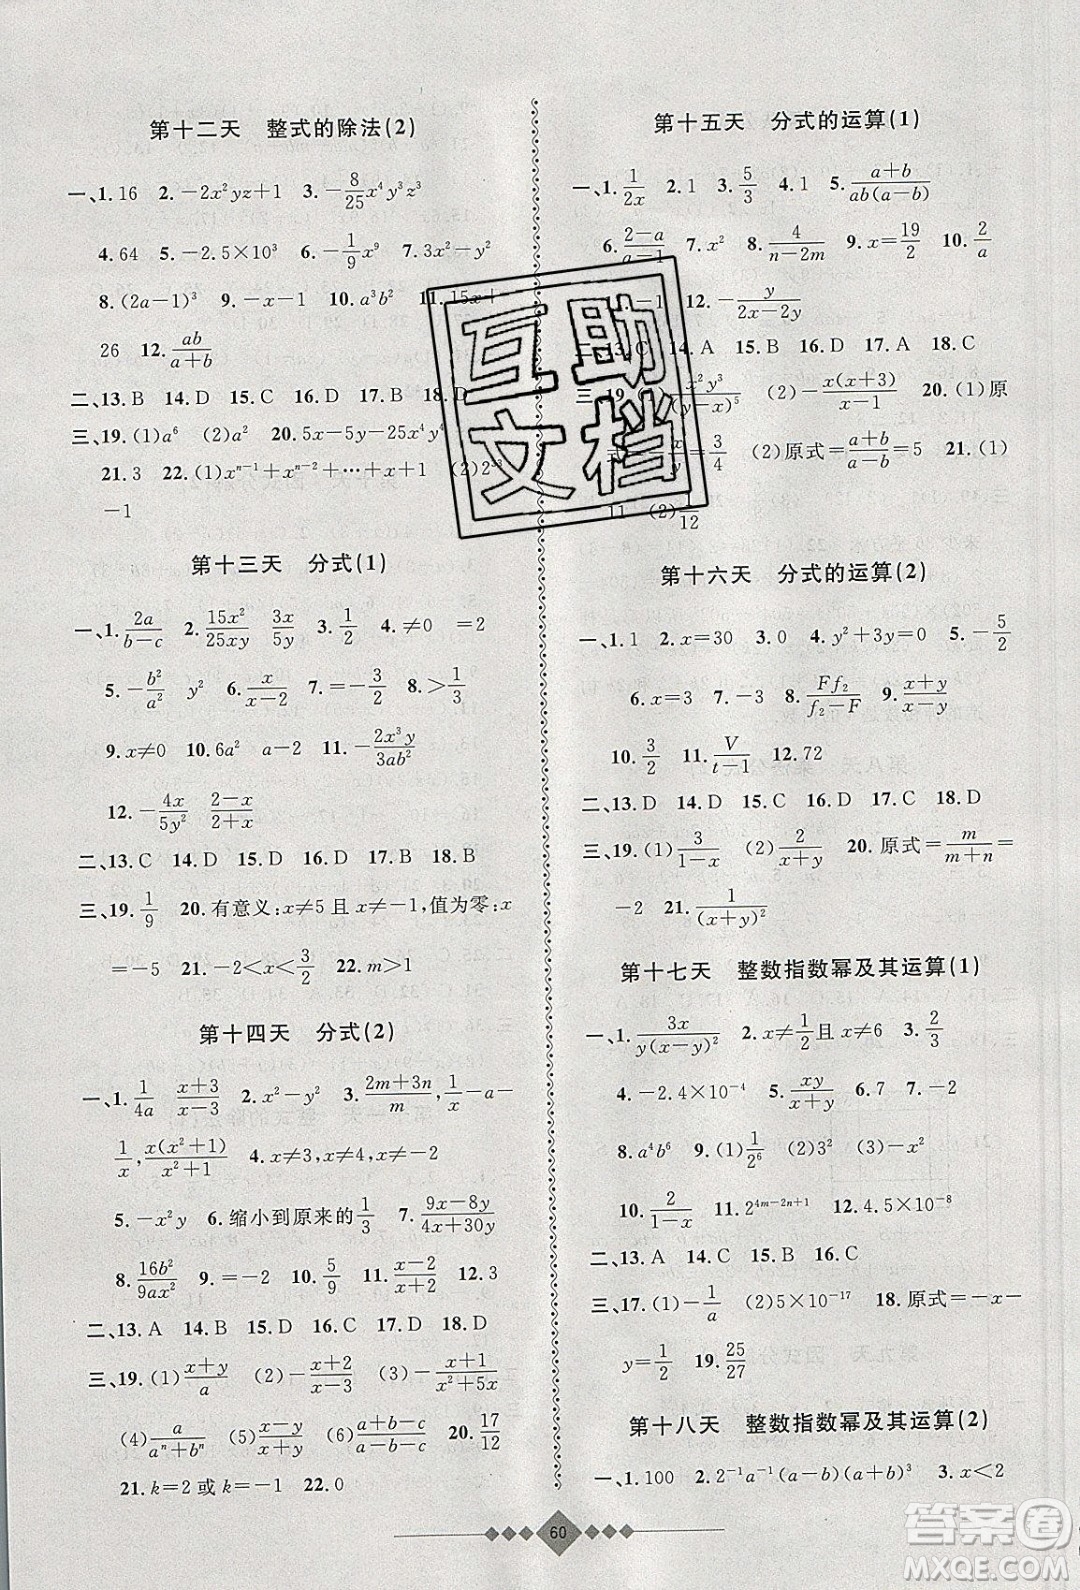 第十二天　整式的除法(2)
一、1. 16　2. −2x²yz+1　3. −8/25x⁴y³z³
4. 64　5. −2.5×10³　6. −1/9x⁹　7. 3x−y²
8. (2a−1)³　9. −x−1　10. a³b²　11. 15x+
26　12. ab/(a+b)
二、13. B　14. D　15. D　16. B　17. B　18. D
三、19. (1)a⁶　(2)a²　20. 5x−5y−25x⁴y⁴
21. 3　22. (1)xⁿ⁻¹+xⁿ⁻²+…+x+1　(2)2
−1
第十三天　分式(1)
一、1. 2a/(b−c)　2. 15x²/25xy　3x/5y　3. 1/2　4. ≠0　=2
5. −b²/a²　y²　6. x/(x−2)　7. =−3/2　8. >1/3
9. x≠0　10. 6a²　a−2　11. −2x³y/3ab²
12. −4x/5y²　(2−x)/(2+x)
二、13. C　14. D　15. D　16. B　17. B　18. B
三、19. 1/9　20. 有意义:x≠5且x≠−1,值为零:x
=−5　21. −2<x<3/2　22. m>1
第十四天　分式(2)
一、1. 1/4a　(x+3)/(x−3)　2. x²−y²　3. (2m+3n)/m,1/x−a−
1/x,x(x²+1)/(x²+1)　4. x≠3,x≠4,x≠−2
5. −x²y　6. 缩小到原来的1/3　7. (9x−8y)/(4x+30y)
8. 16b²/9ax²　9. =−2　10. 5/9　11. (x−2)/(x+2)　12. 3
二、13. A　14. B　15. D　16. A　17. B　18. D
三、19. (1)(x+y)/a　(2)(x+2)/(x−3)　(3)(x+1)/(x²+x+1)
(4)a/(aⁿ+bⁿ)　(5)(x−y)/(x+y)　(6)(a+b−c)/(a−b+c)　20. 17/12
21. k=2或k=1　22. 0
第十五天　分式的运算(1)
一、1. 1/2x　2. 1　3. 5/3　4. 1　5. (a+b)/ab(a−b)
6. (2−a)/(a−1)　7. x²　8. 4/(n−2m)　9. x=19/2　10. 2/a
−1　12. −y/(2x−2y)
二、13. C　14. A　15. B　16. A　17. A　18. C
三、19. (1)x²y³/(y−x)⁵　(2)−x(x+3)/(x−1)　20. (1)原
x/y=3/4　(2)原式=(a+b)/(a−b)=5　21. (1)
11　(2)1/12
第十六天　分式的运算(2)
一、1. 1　2. x=30　3. 0　4. y²+3y=0　5. −5/2
6. x=3　7. −3　8. Ff₂/(f₂−F)　9. (x+y)/(x−y)
10. 3/2　11. V/(t−1)　12. 72
二、13. D　14. D　15. C　16. B　17. D　18. D
三、19. (1)3/(1−x)　(2)2/(x+y)　20. 原式=m/(m+n)=
−2　21. 1/(x+y)²
第十七天　整数指数幂及其运算(1)
一、1. 3x/y(x−y)²　2. x≠1/2且x≠6　3. 2/3
4. −2.4×10⁻⁴　5. xy/(x+y)　6. 7　7. −2
8. a⁴b⁶　9. (1)1/2⁶　(2)3²　(3)1
10. 2/(1−x)　11. 2⁴ᵐ⁻²ⁿ⁺¹　12. 4.5×10⁻⁸
二、13. A　14. C　15. D　16. C
三、17. (1)−1/a　(2)5×10⁻¹⁷　18. 原式=−x−
y=1/2　19. 25/27
第十八天　整数指数幂及其运算(2)
一、1. 100　2. 2⁻¹a⁻¹(a−b)(a+b)³　3. x<2
60
互助
文档
答案圈
MXQE.COM